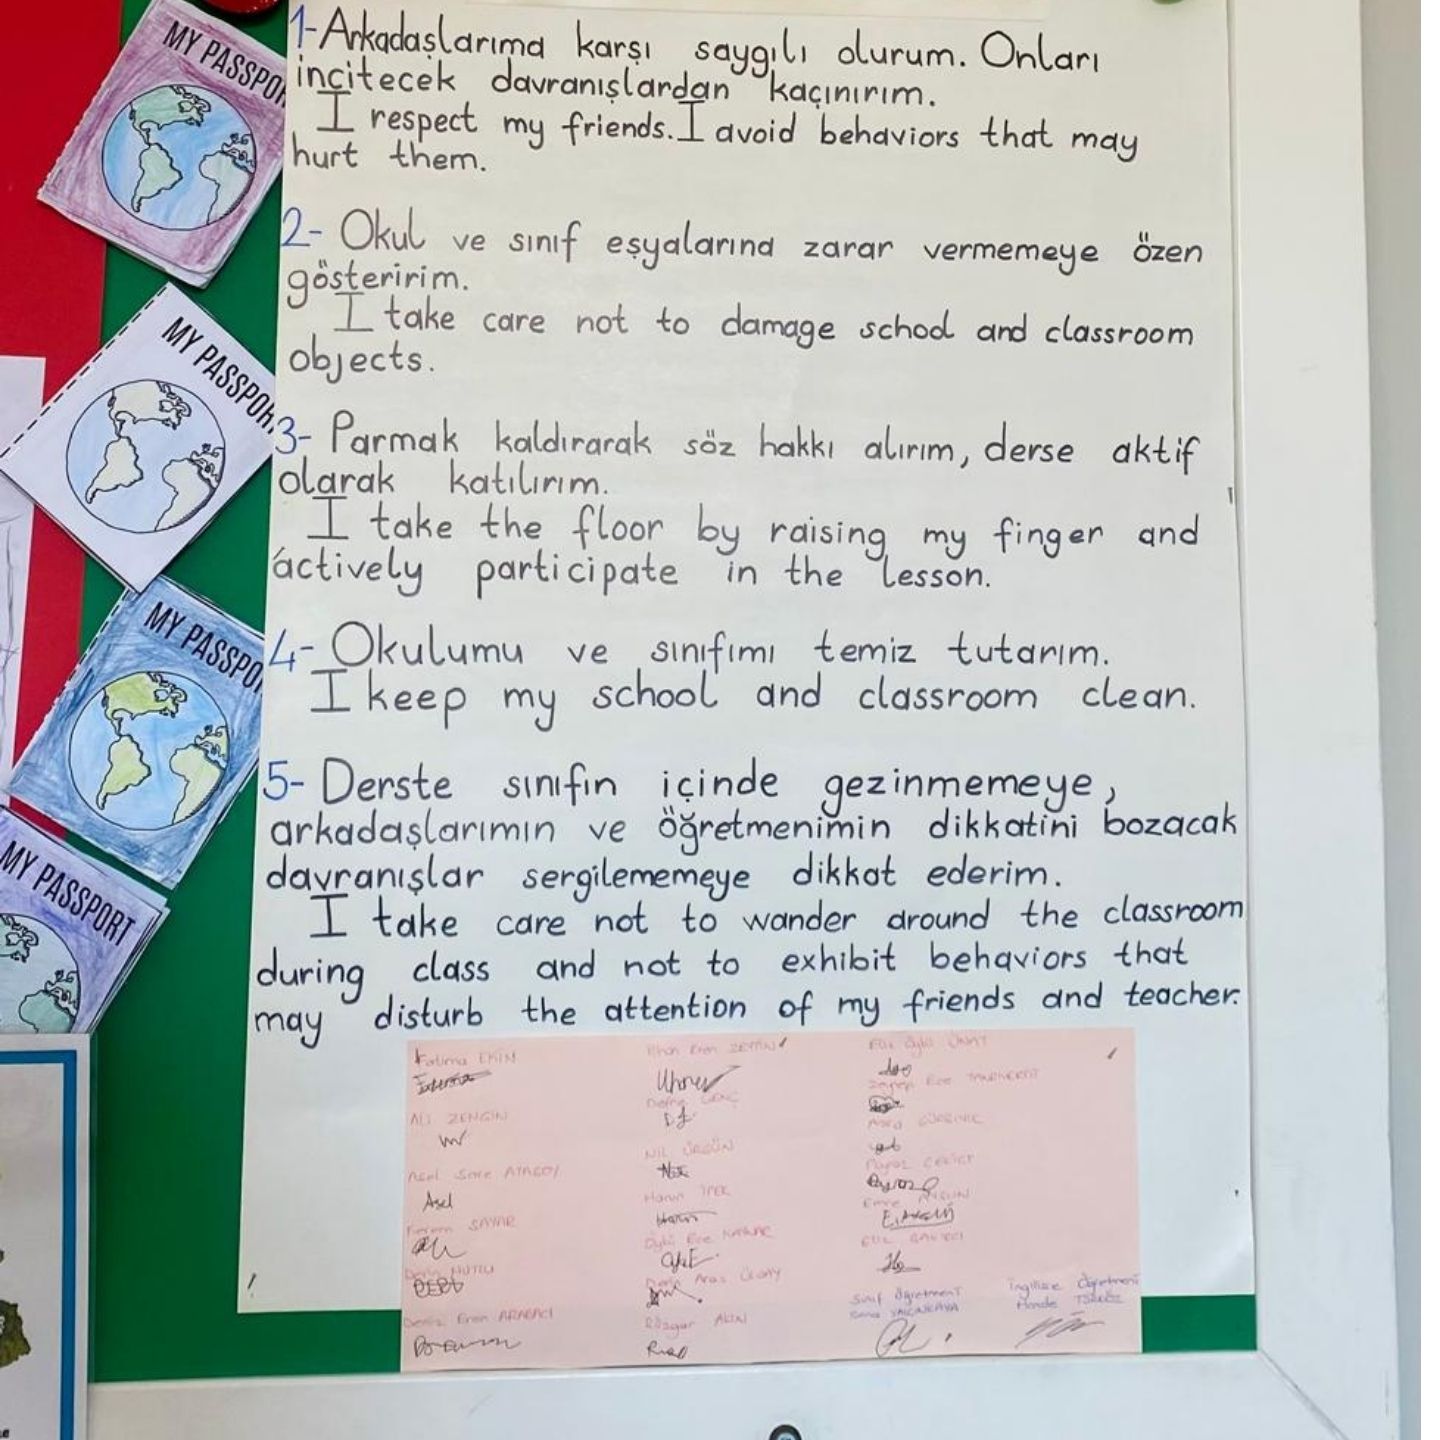 MY PASSPOR
MY PASSPOR
MY PASSPO
MY PASSPORT
1-Arkadaşlarıma karşı saygılı olurum. Onları
incitecek davranışlardan kaçınırım.
I respect my friends. I avoid behaviors that may
hurt them.
2- Okul ve sınıf eşyalarına zarar vermemeye özen
gösteririm.
I take care not to damage school and classroom
objects.
3- Parmak kaldırarak söz hakkı alırım, derse aktif
olarak katılırım.
I take the floor by raising my finger and
actively participate in the lesson.
4- Okulumu ve sınıfımı temiz tutarım.
I keep my school and classroom clean.
5- Derste sınıfın içinde gezinmemeye,
arkadaşlarımın ve öğretmenimin dikkatini bozacak
davranışlar sergilememeye dikkat ederim.
I take care not to wander around the classroom
during class and not to exhibit behaviors that
may disturb the attention of my friends and teacher.
Fatima EKİN
ALİ ZENGİN
Asel
SAYAR
Derin MUTLU
Deniz Eren ARABACI
Eren
GENÇ
NİL ÜRGÜN
Harun İPEK
Öykü Ece
Derin Aras
Rüzgar
Elif Öykü ÜNAT
Zeynep Ece
Poyraz
Emre AYGÜN
E.AYGÜN
ELİZ
Sınıf Öğretmeni
İngilizce Öğretmeni
Hande